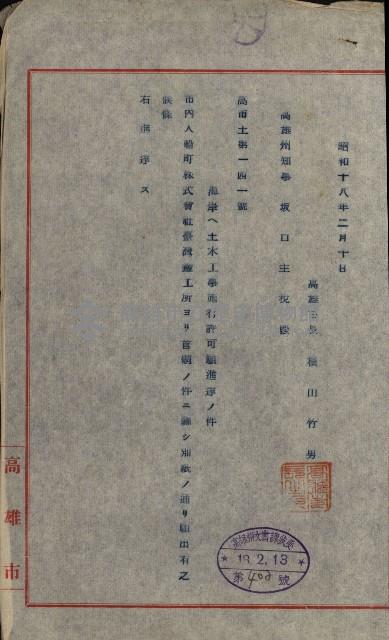 昭和十八年二月十日
高雄市長 田竹男
高雄州知事 坂口主税殿
高市土第一四一號
海岸ヘ土木工事施行許可願進達ノ件
市內入船町株式會社臺灣鐵工所ヨリ首題ノ件ニ關シ別紙ノ通リ願出有之
候條
右進達ス
高雄市
18.2.13
第402號